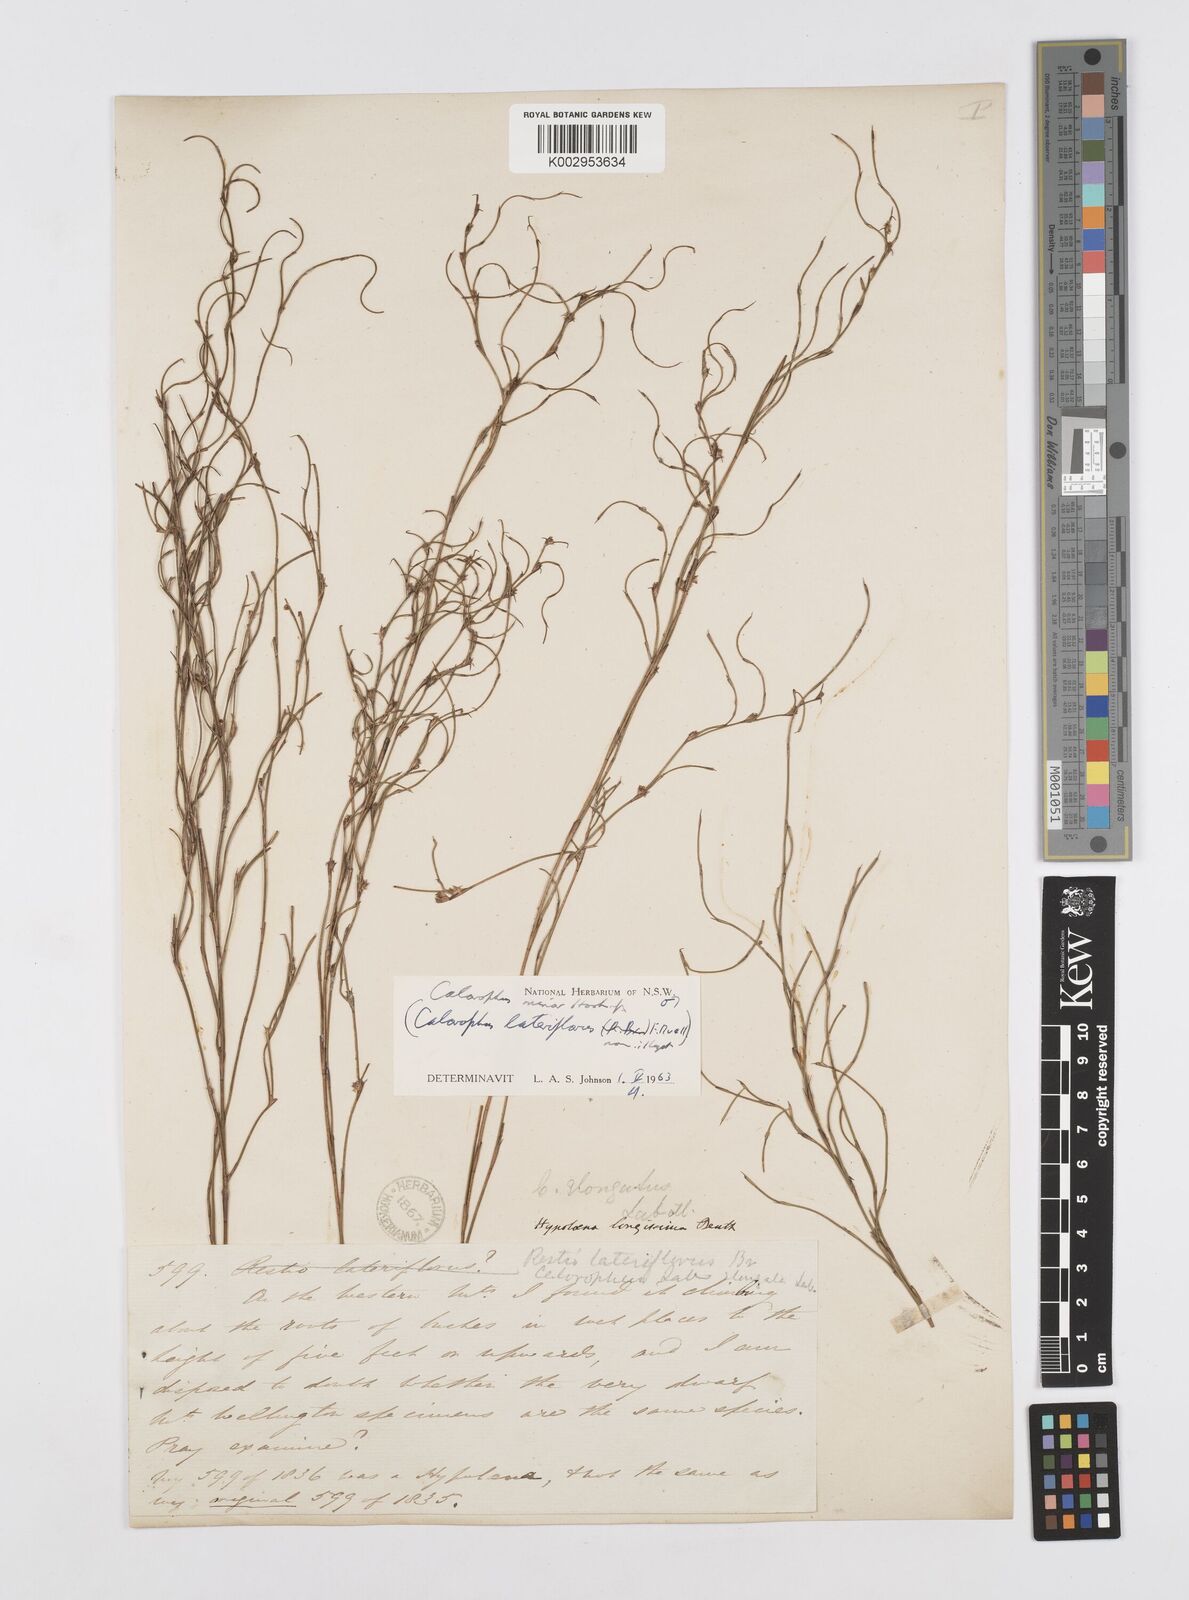 ROYAL BOTANIC GARDENS KEW
K002953634
I
NATIONAL HERBARIUM OF N.S.W.
Calorophus minor Hook.f.
(Calorophus lateriflorus (R.Br.) F.Muell)
non illegit.
DETERMINAVIT L. A. S. Johnson 1. V 1963
HERBARIUM
HOOKERIANUM
1867
C. elongatus
Labill.
Hypolaena longissima Benth
599. Restio lateriflorus? Restio lateriflorus Br
Calorophus Lab. elongata Lab.
On the Western Mts I found it climbing
about the roots of bushes in wet places to the
height of five feet or upwards, and I am
disposed to doubt whether the very dwarf
Mt Wellington specimens are the same species.
Pray examine?
My 599 of 1836 was a Hypolena, & not the same as
my original 599 of 1835.
inches
centimeters
Density
Don Williams
M001051
Kew
Royal Botanic Gardens
copyright reserved
0 1 2 3 4 5 6 7 8 9 10
cm